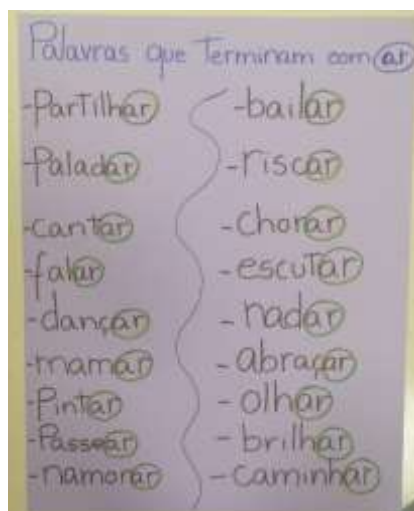 Palavras que Terminam com ar
-Partilhar
-Paladar
-cantar
-falar
-dançar
-mamar
-Pintar
-Passear
-namorar
-bailar
-riscar
-chorar
-escutar
-nadar
-abraçar
-olhar
-brilhar
-caminhar